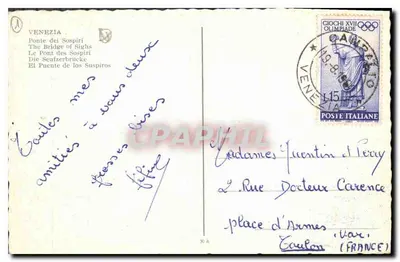 1
VENEZIA
Ponte dei Sospiri
The Bridge of Sighs
Le Pont des Soupirs
Die Seufzerbrücke
El Puente de los Suspiros
Toutes mes
amitiés à vous deux
grosses bises
fifine
GIOCHI XVII
OLIMPIADE
L15
POSTE ITALIANE
VENE
Mesdames Quentin et Perry
2 Rue Docteur Carence
place d'Armes
Toulon
Var
(FRANCE)
CPArama.com